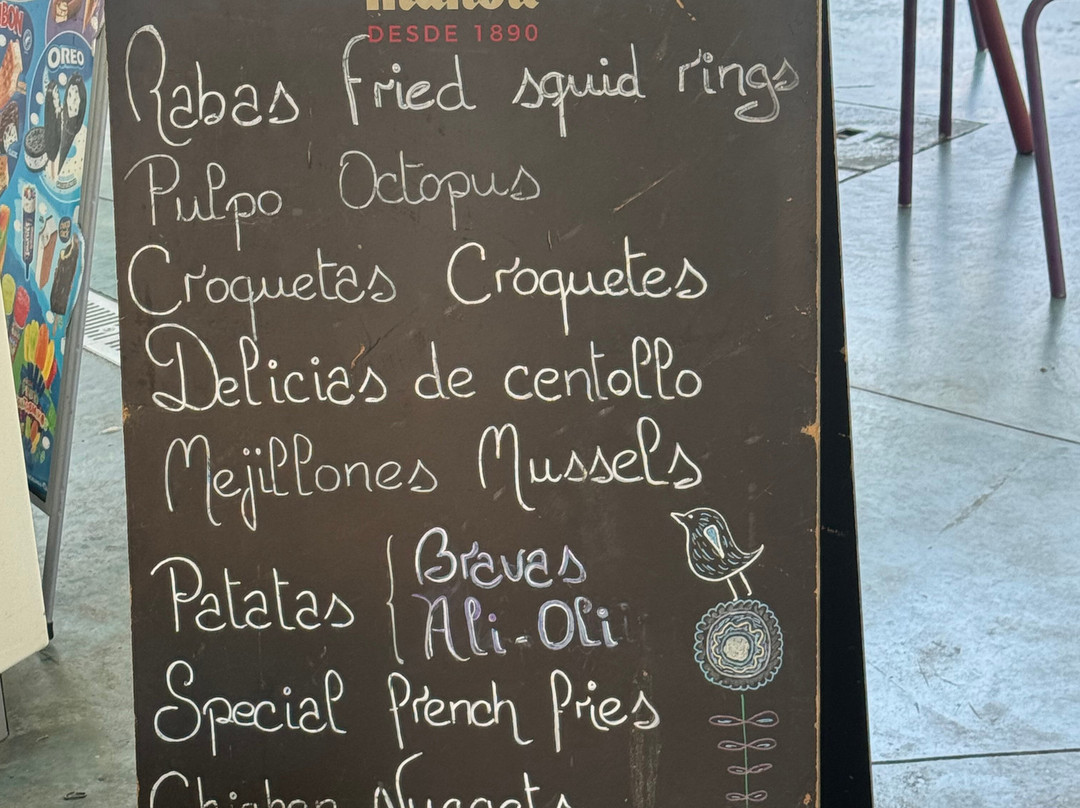 mahou
DESDE 1890
Rabas Fried squid rings
Pulpo Octopus
Croquetas Croquetes
Delicias de centollo
Mejillones Mussels
Patatas { Bravas
Ali-Oli
Special french fries
Chicken Nuggets
OREO